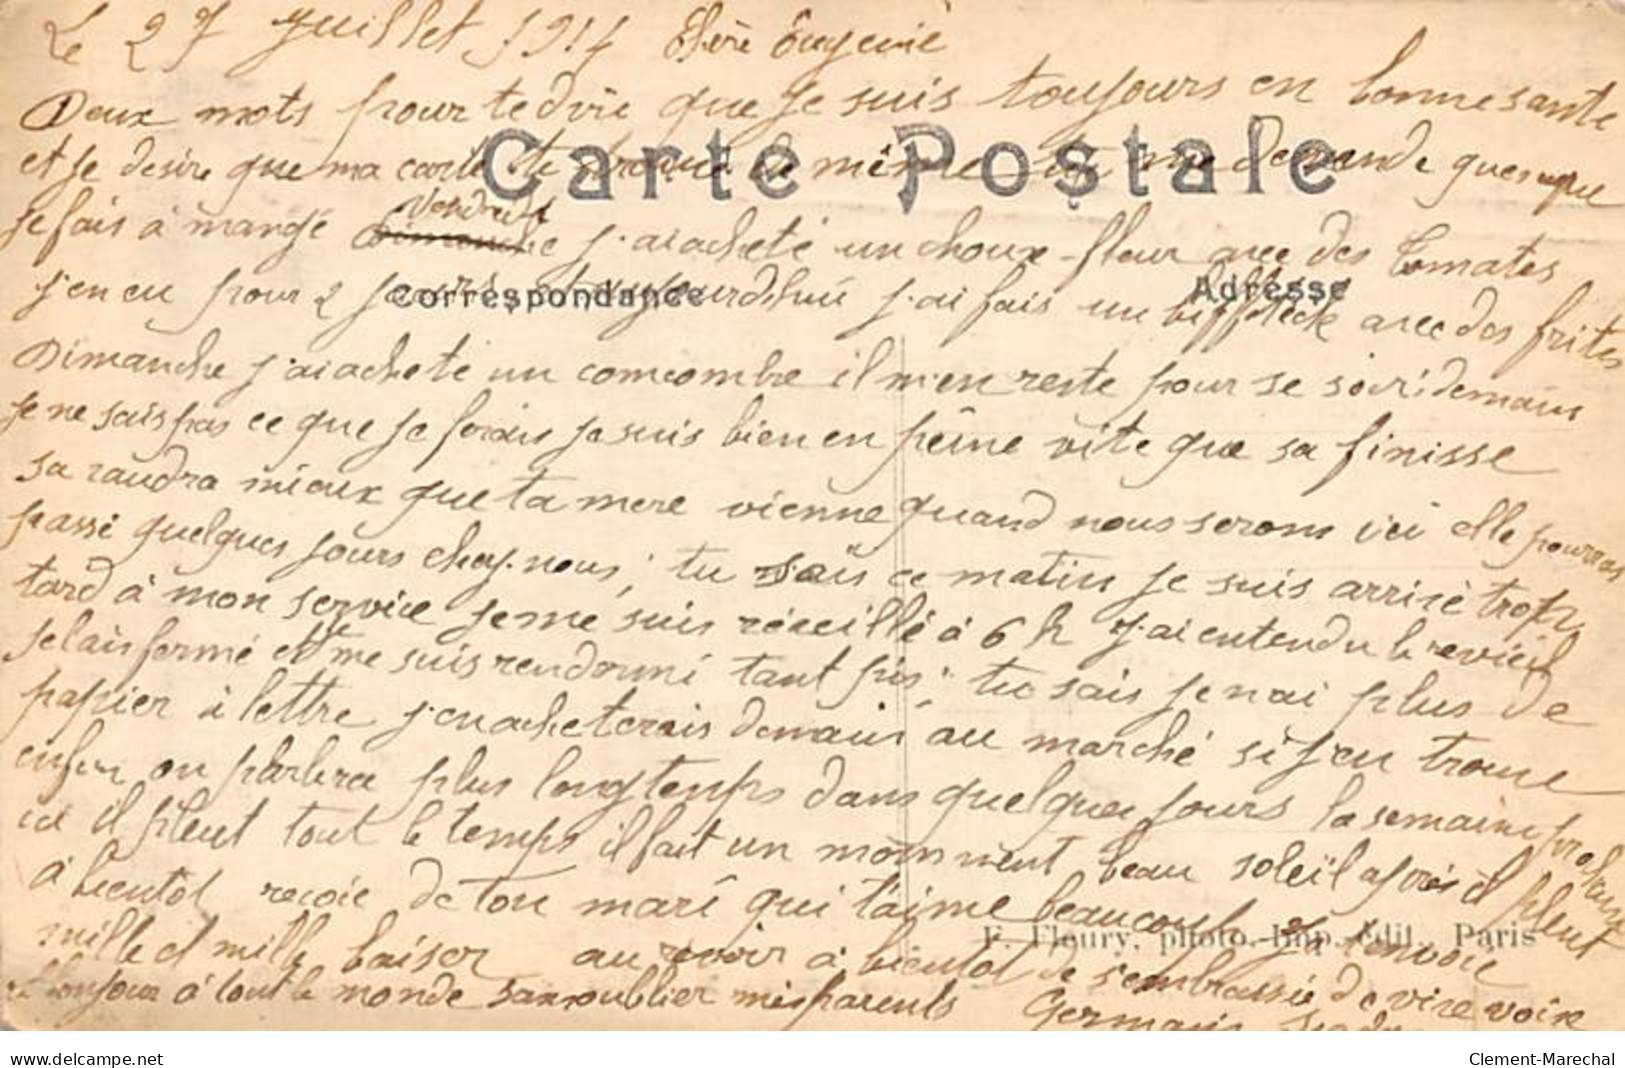 Le 27 Juillet 1914 Chère Eugenie
Deux mots pour te dire que je suis toujours en bonne sante
Carte Postale
et je desire que ma carte te trouve de même tu me demande quesque
je fais à mangé Dimanche Vendredi j'ai acheté un choux-fleur avec des tomates
Correspondance
Adresse
j'en eu pour 2 jours aujourdhui j'ai fais un biffteck avec des frites
Dimanche j'ai acheté un comcombre il m'en reste pour se soir; demain
je ne sais pas ce que je ferais je suis bien en peine vite que sa finisse
sa vaudra mieux que ta mere vienne quand nous serons ici elle pourras
passé quelques jours chez nous; tu sais ce matin je suis arrivé trop
tard à mon service je me suis réveillé à 6 h j'ai entendu le reveil
je lais fermé et je me suis rendormi tant pis; tu sais je nai plus de
papier à lettre j'en acheterais demain au marché si j'en trouve
enfin on parlera plus longtemps dans quelques jours la semaine prochaine
ici il pleut tout le temps il fait un momment beau soleil après il pleut
à bientot reçoie de ton mari qui t'aime beaucoup et t'envoie
F. Fleury, photo.-Imp. édit., Paris
mille et mille baiser au revoir à bientot de s'embrassé de vive voix
bonjour à tout le monde sans oublier mes parents
Germain
www.delcampe.net
Clement-Marechal